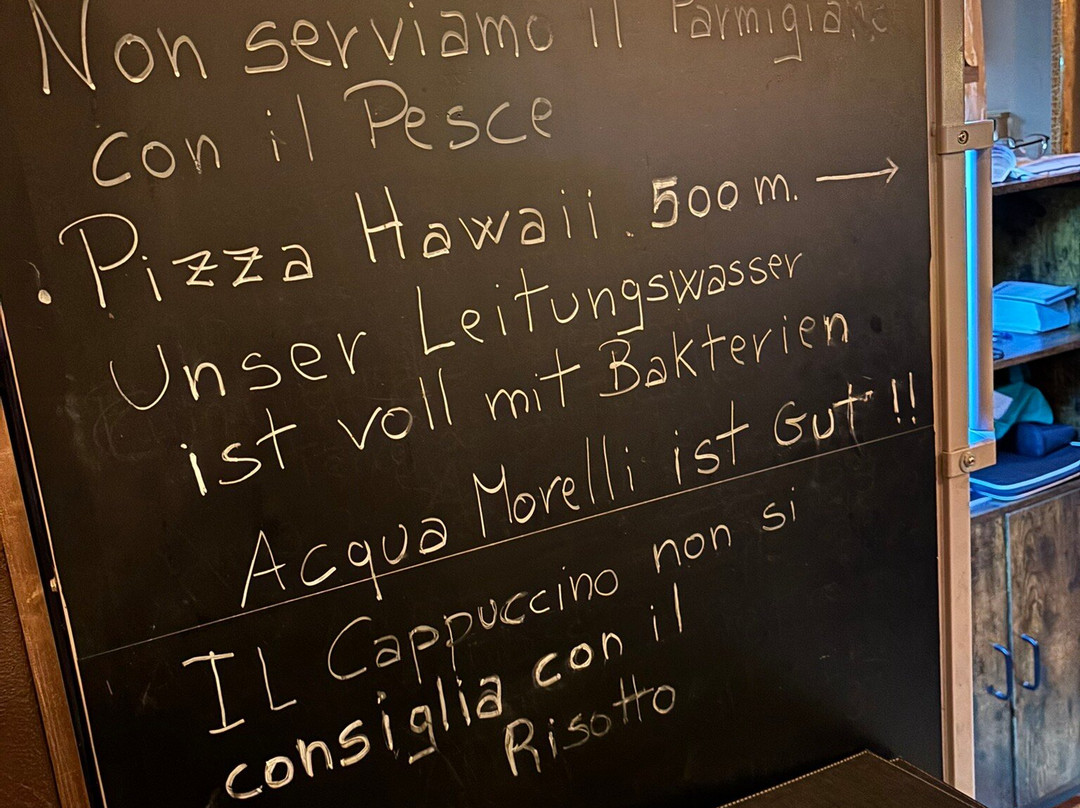 Non serviamo il Parmigiano
con il Pesce
. Pizza Hawaii . 500 m. →
Unser Leitungswasser
ist voll mit Bakterien
Acqua Morelli ist Gut !!
IL Cappuccino non si
consiglia con il
Risotto